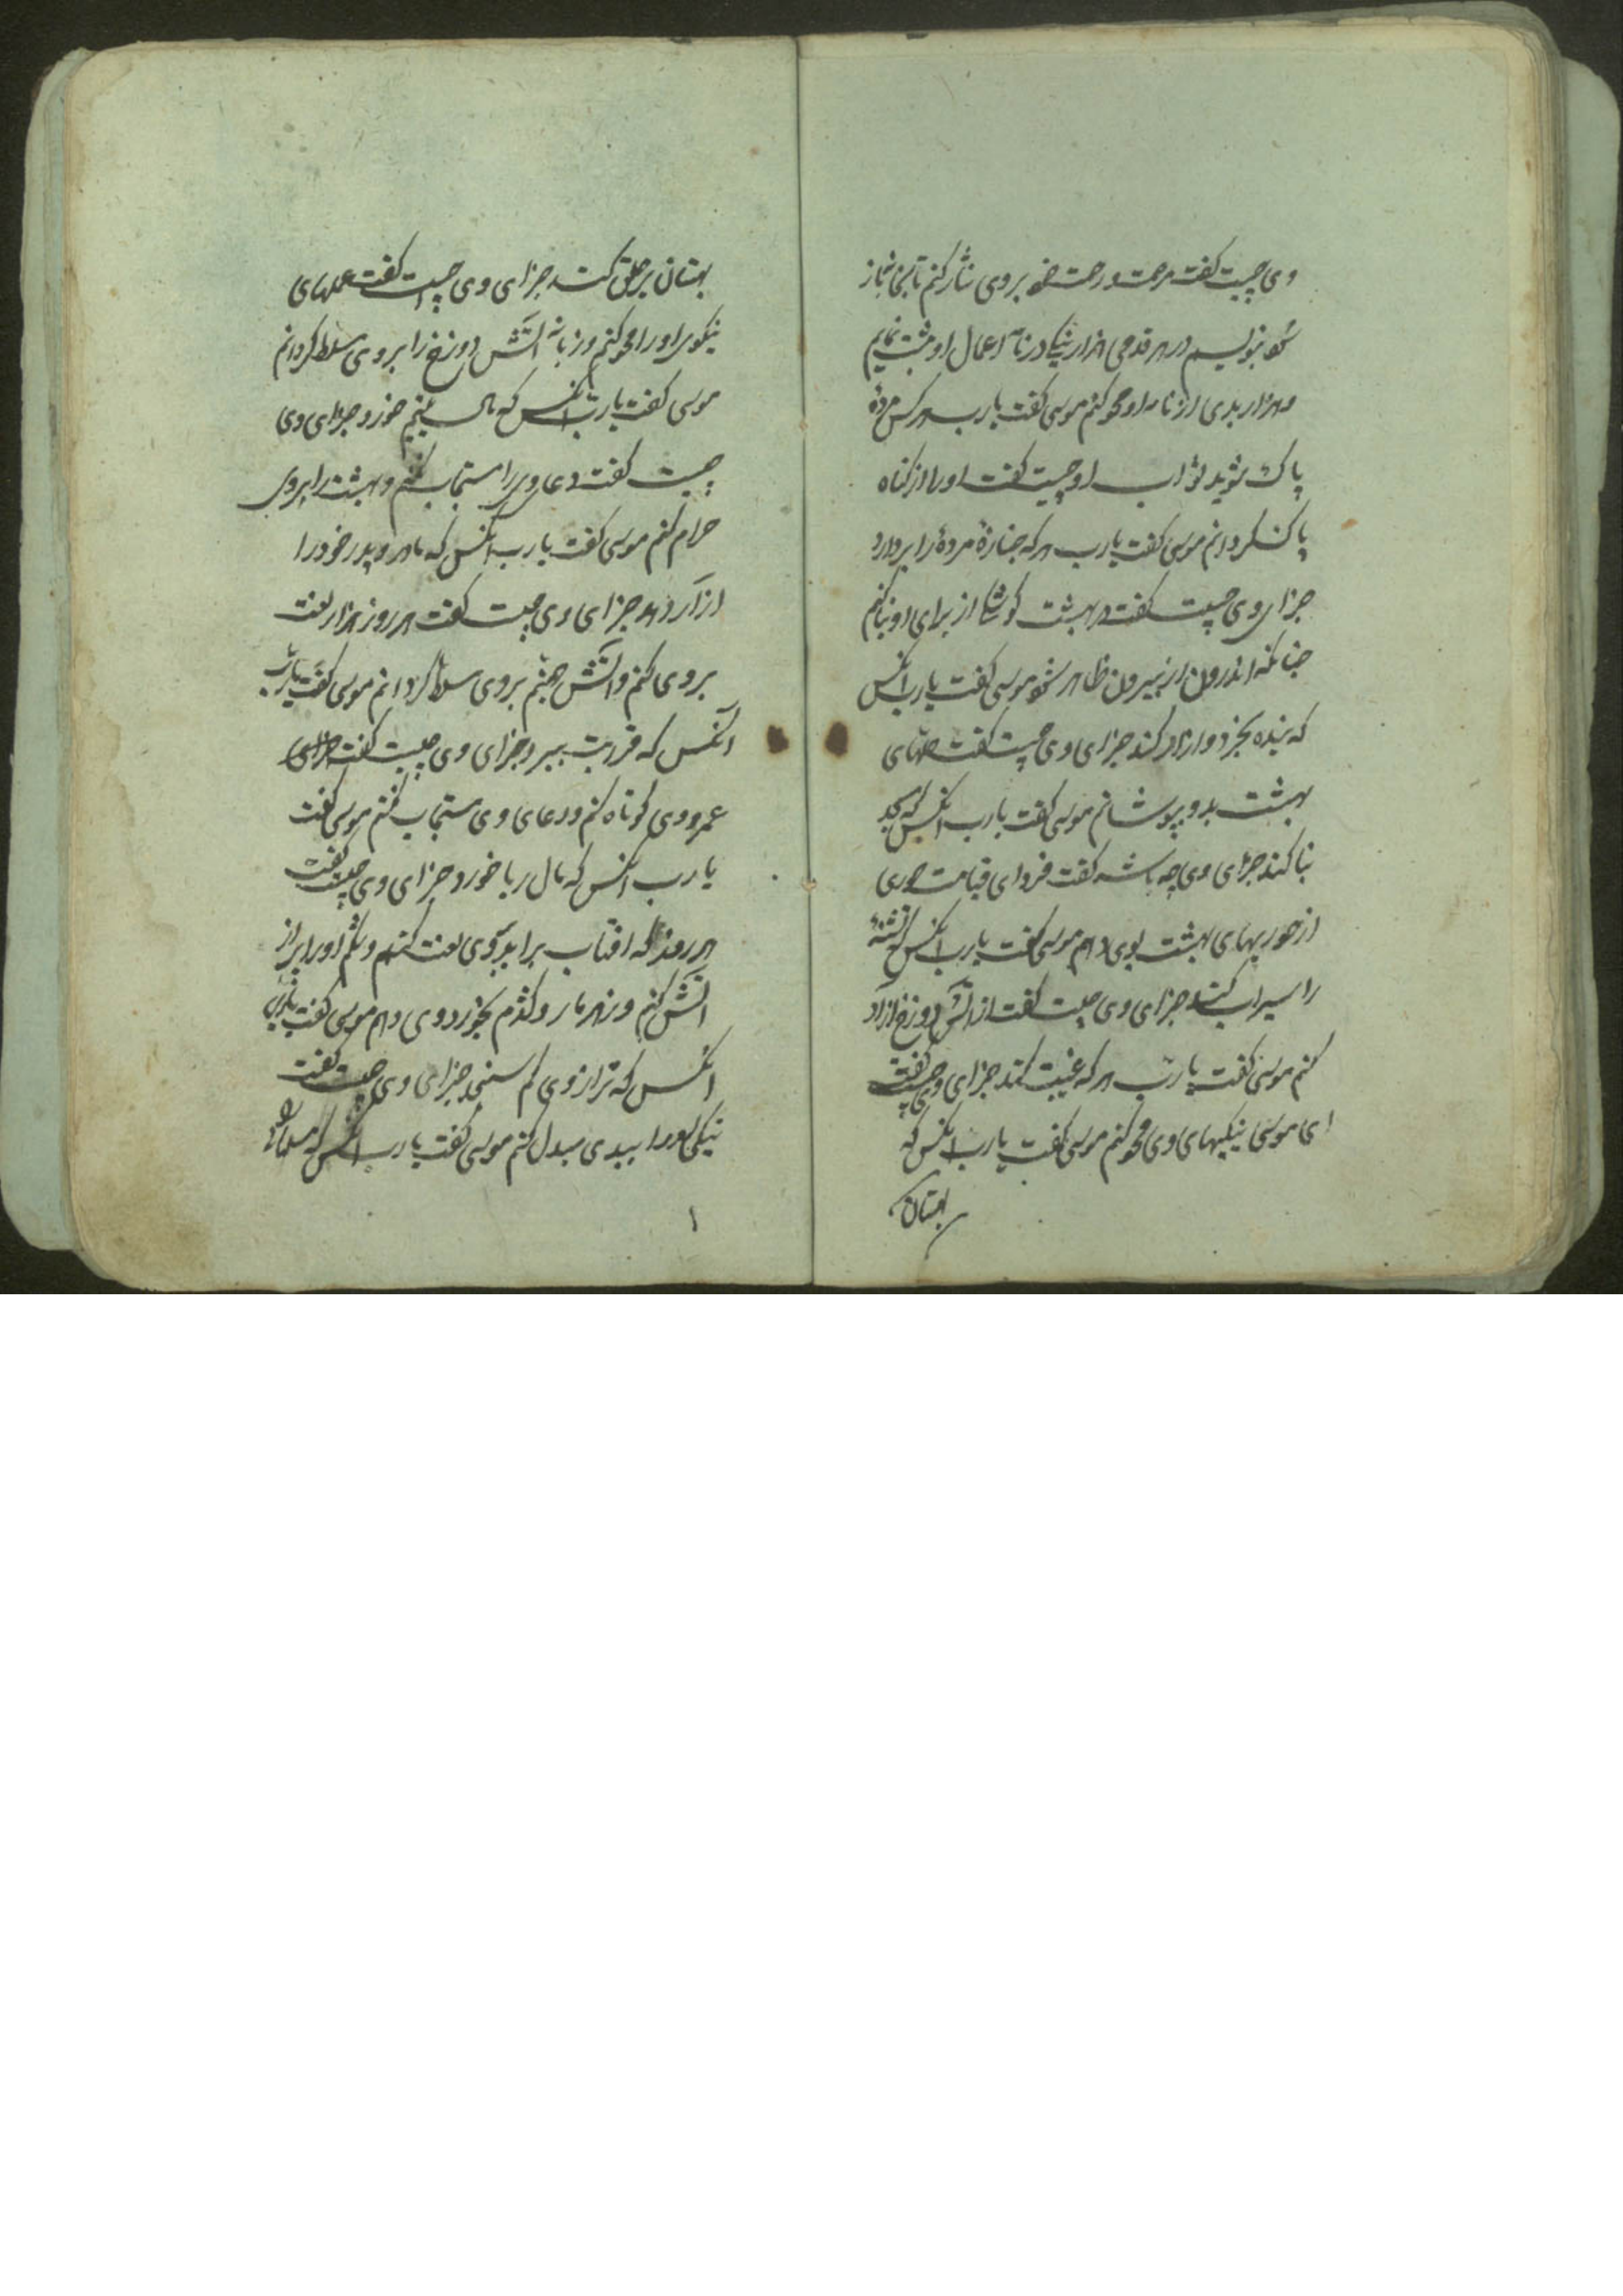 وی چیست گفت مرحمت و رحمت خود بروی نثار کنم تا بی نیاز
شود بنویسم در هر قدمی هزار نیکی در نامه اعمال او مثبت نمایم
و هزار بدی از نامه او محو کنم موسی گفت یارب هر کس مرده
پاک بشوید ثواب او چیست گفت او را از گناه
پاک گردانم موسی گفت یارب هر که جنازهٔ مردهٔ را بردارد
جزای وی چیست گفت در بهشت کوشکی از برای او بنا کنم
چنانکه اندرون از بیرون ظاهر شود موسی گفت یارب انکس
که بنده بخرد و ازاد کند جزای وی چیست گفت حلهای
بهشت بدو پوشانم موسی گفت یارب انکس که مسجد
بنا کند جزای وی چه باشد گفت فردای قیامت حوری
از حوریهای بهشت بوی دهم موسی گفت یارب انکس که تشنهٔ
را سیراب کند جزای وی چیست گفت از اتش دوزخ ازاد
کنم موسی گفت یارب هر که غیبت کند جزای وی چیست گفت
ای موسی نیکیهای وی محو کنم موسی گفت یارب انکس که
بهتان
بهتان بر خلق کند جزای وی چیست گفت عملهای
نیکوی او را محو کنم و زبانهٔ اتش دوزخ را بروی مسلط گردانم
موسی گفت یارب انکس که مال یتیم خورد جزای وی
چیست گفت دعا ویرا مستجاب نکنم و بهشت را بروی
حرام کنم موسی گفت یارب انکس که مادر و پدر خود را
ازار دهد جزای وی چیست گفت هر روز هزار لعنت
بروی کنم و اتش جهنم بروی مسلط گردانم موسی گفت یارب
انکس که قرابت ببرد جزای وی چیست گفت
عمر وی کوتاه کنم و دعای وی مستجاب نکنم موسی گفت
یارب انکس که مال ربا خورد جزای وی چیست گفت
هر روز که افتاب براید بوی لعنت کنم و شکم او را پر از
اتش کنم و زهر مار و کژدم بخورد وی دهم موسی گفت یارب
انکس که ترازوی کم سنجد جزای وی چیست گفت
نیکی او را ببدی مبدل کنم موسی گفت یارب انکس که
۱